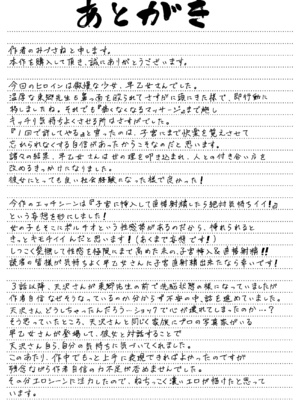 あとがき
作者のみづさねと申します。
本作を購入して頂き、誠にありがとうございます。
今回のヒロインは傲慢な少女、早乙女さんでした。
温厚な東郷先生も鼻っ面を殴られてさすがに頭にきた様で、即行動に
移しましたね。それでも『傷くなくなるマッサージ』まで施し
キッチリ気持ちよくさせる所はさすがでした。
『1回で許してやる』と言ったのは、子宮にまで快楽を覚えさせて
忘れられなくする自信があったからこそなのだと思います。
諸々の結果、早乙女さんは世の理を叩き込まれ、人との付き合い方を
改めるきっかけになりました。
彼女にとっても良い社会経験になった様で良かった!
今作のエッチシーンは『子宮に挿入して直接射精したら絶対気持ちイイ!』
という妄想を形にしました!
女の子もそこにポルチオという性感帯があるのだから、挿れられると
きっとキモチイイんだと思います!(あくまで妄想です!)
しつこく愛撫して性感を極限にまで高めた末の、子宮挿入&直接射精!!
読者の皆様が気持ちよく早乙女さんに子宮直射精出来たなら幸いです!
3話以降、天沢さんが東郷先生の前で洗脳状態の様になっていましたが
作者自信なぜそうなっているのか分からず不安の中、話を進めていました。
天沢さんどうしちゃったんだろう…ショックで心が壊れてしまったのか…?
そう思っていたところ、天沢さんと同じく家族にプロの写真家がいる
早乙女さんが登場して、彼女と対話することで
天沢さん自ら、自分の気持ちに気づいてくれました。
このあたり、作中でもっと上手に表現できればよかったのですが
残念ながら作者自信の力不足が否めませんでした。
その分エロシーンに注力したので、ねちっこく濃いエロが描けたと思って
います。